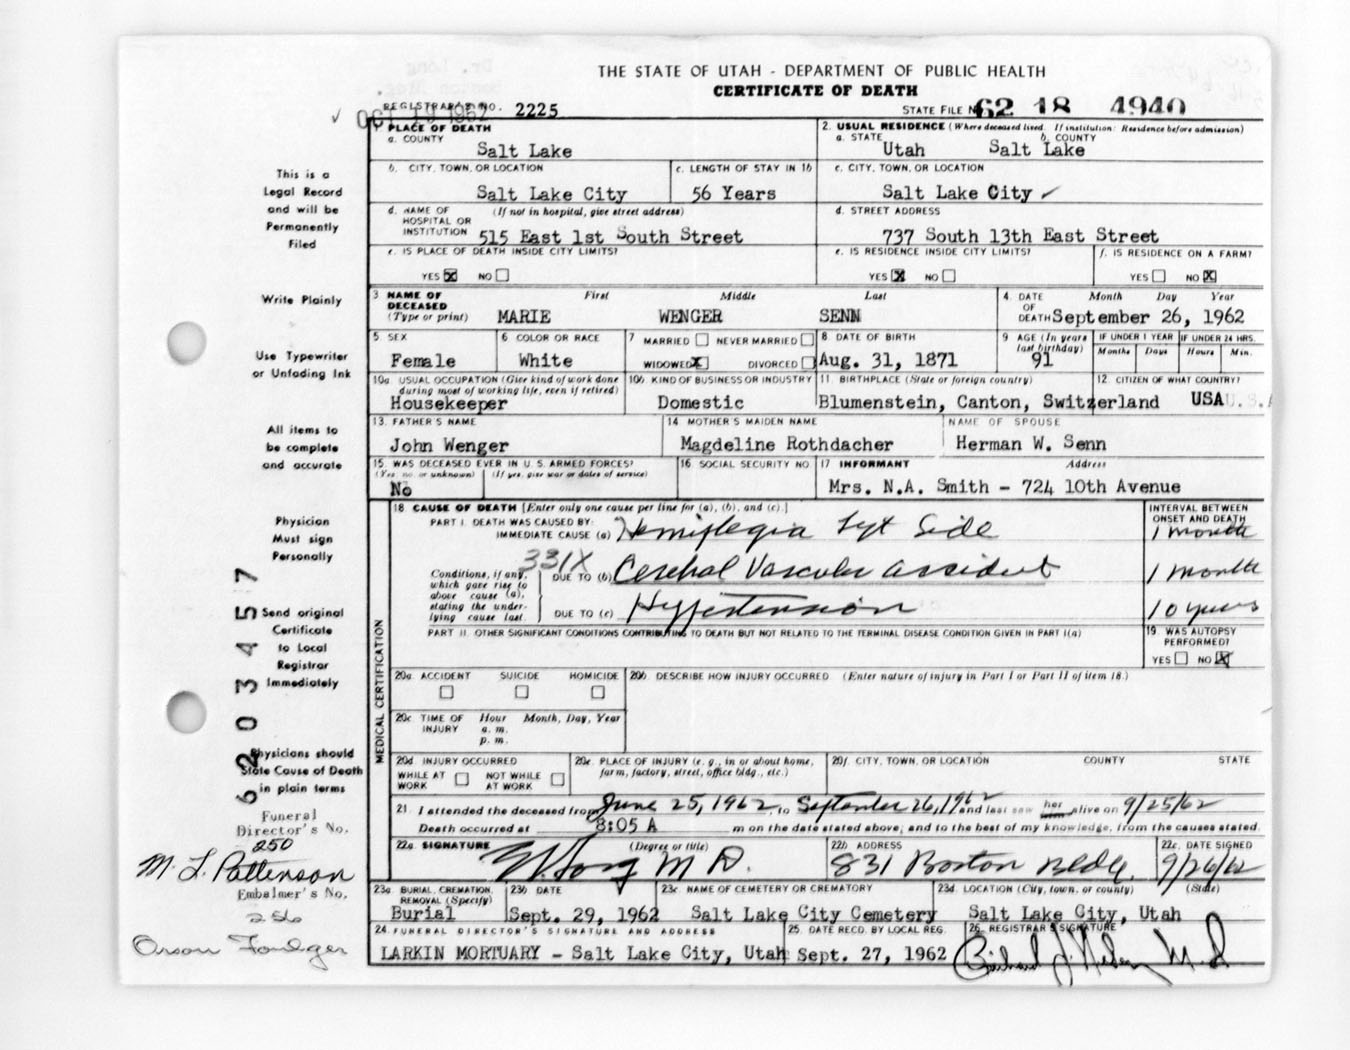 THE STATE OF UTAH - DEPARTMENT OF PUBLIC HEALTH
CERTIFICATE OF DEATH
REGISTRAR'S NO. 2225
OCT 19 1962
STATE FILE NO. 62 18 4940
PLACE OF DEATH
a. COUNTY
Salt Lake
2. USUAL RESIDENCE (Where deceased lived. If institution: Residence before admission)
a. STATE b. COUNTY
Utah Salt Lake
b. CITY, TOWN, OR LOCATION
Salt Lake City
c. LENGTH OF STAY IN 1b
56 Years
c. CITY, TOWN, OR LOCATION
Salt Lake City ✓
d. NAME OF HOSPITAL OR INSTITUTION (If not in hospital, give street address)
515 East 1st South Street
d. STREET ADDRESS
737 South 13th East Street
e. IS PLACE OF DEATH INSIDE CITY LIMITS?
YES ☒ NO ☐
e. IS RESIDENCE INSIDE CITY LIMITS?
YES ☒ NO ☐
f. IS RESIDENCE ON A FARM?
YES ☐ NO ☒
3 NAME OF DECEASED (Type or print) First Middle Last
MARIE WENGER SENN
4. DATE OF DEATH Month Day Year
September 26, 1962
5 SEX
Female
6 COLOR OR RACE
White
7 MARRIED ☐ NEVER MARRIED ☐
WIDOWED ☒ DIVORCED ☐
8 DATE OF BIRTH
Aug. 31, 1871
9 AGE (In years last birthday)
91
IF UNDER 1 YEAR
Months Days
IF UNDER 24 HRS.
Hours Min.
10a USUAL OCCUPATION (Give kind of work done during most of working life, even if retired)
Housekeeper
10b. KIND OF BUSINESS OR INDUSTRY
Domestic
11. BIRTHPLACE (State or foreign country)
Blumenstein, Canton, Switzerland
12. CITIZEN OF WHAT COUNTRY?
USA
13. FATHER'S NAME
John Wenger
14 MOTHER'S MAIDEN NAME
Magdeline Rothdacher
NAME OF SPOUSE
Herman W. Senn
15. WAS DECEASED EVER IN U. S. ARMED FORCES?
(Yes, no, or unknown) (If yes, give war or dates of service)
No
16 SOCIAL SECURITY NO
17 INFORMANT Address
Mrs. N.A. Smith - 724 10th Avenue
MEDICAL CERTIFICATION
18 CAUSE OF DEATH [Enter only one cause per line for (a), (b), and (c).]
PART I. DEATH WAS CAUSED BY:
IMMEDIATE CAUSE (a) Hemiplegia Lyt Side
331X
Conditions, if any, which gave rise to above cause (a), stating the underlying cause last.
DUE TO (b) Cerebral Vascular accident
DUE TO (c) Hypertension
INTERVAL BETWEEN ONSET AND DEATH
1 month
1 month
10 years
PART II. OTHER SIGNIFICANT CONDITIONS CONTRIBUTING TO DEATH BUT NOT RELATED TO THE TERMINAL DISEASE CONDITION GIVEN IN PART I(a)
19. WAS AUTOPSY PERFORMED?
YES ☐ NO ☒
20a ACCIDENT SUICIDE HOMICIDE
20b DESCRIBE HOW INJURY OCCURRED (Enter nature of injury in Part I or Part II of item 18.)
20c TIME OF INJURY Hour a. m. p. m. Month, Day, Year
20d INJURY OCCURRED
WHILE AT WORK ☐ NOT WHILE AT WORK ☐
20e. PLACE OF INJURY (e. g., in or about home, farm, factory, street, office bldg., etc.)
20f. CITY, TOWN, OR LOCATION COUNTY STATE
21. I attended the deceased from June 25, 1962, to September 26, 1962 and last saw her alive on 9/25/62
Death occurred at 8:05 A m on the date stated above; and to the best of my knowledge, from the causes stated.
22a. SIGNATURE (Degree or title)
Long M D.
22b ADDRESS
831 Boston Bldg.
22c. DATE SIGNED
9/26/62
23a. BURIAL, CREMATION, REMOVAL (Specify)
Burial
23b DATE
Sept. 29, 1962
23c NAME OF CEMETERY OR CREMATORY
Salt Lake City Cemetery
23d. LOCATION (City, town, or county) (State)
Salt Lake City, Utah
24. FUNERAL DIRECTOR'S SIGNATURE AND ADDRESS
LARKIN MORTUARY - Salt Lake City, Utah
25. DATE RECD. BY LOCAL REG.
Sept. 27, 1962
26. REGISTRAR'S SIGNATURE
This is a
Legal Record
and will be
Permanently
Filed
Write Plainly
Use Typewriter
or Unfading Ink
All items to
be complete
and accurate
Physician
Must sign
Personally
Send original
Certificate
to Local
Registrar
Immediately
Physicians should
State Cause of Death
in plain terms
62 0 3457
Funeral
Director's No.
250
M. L. Pattenson
Embalmer's No.
256